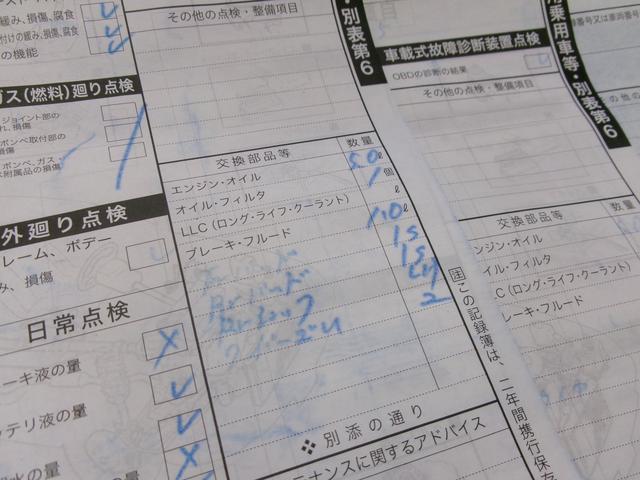 緩み、損傷、腐食
付けの緩み、損傷、腐食
の機能
ガス(燃料)廻り点検
ジョイント部の
れ、損傷
ボンベ取付部の
損傷
ボンベ、ガス
附属品の損傷
外廻り点検
レーム、ボデー
み、損傷
日常点検
レーキ液の量
ッテリ液の量
水の量
その他の点検・整備項目
別表第6
交換部品等 数量
エンジン・オイル 5.0 ℓ
オイル・フィルタ 1 個
LLC(ロング・ライフ・クーラント) ℓ
ブレーキ・フルード 1.0 ℓ
1S
1S
2
❖ 別添の通り
テナンスに関するアドバイス
車載式故障診断装置点検
OBDの診断の結果
その他の点検・整備項目
注 この記録簿は、二年間携行保
乗用車等・別表第6
交換部品等 数量
ンジン・オイル
イル・フィルタ
C(ロング・ライフ・クーラント)
レーキ・フルード